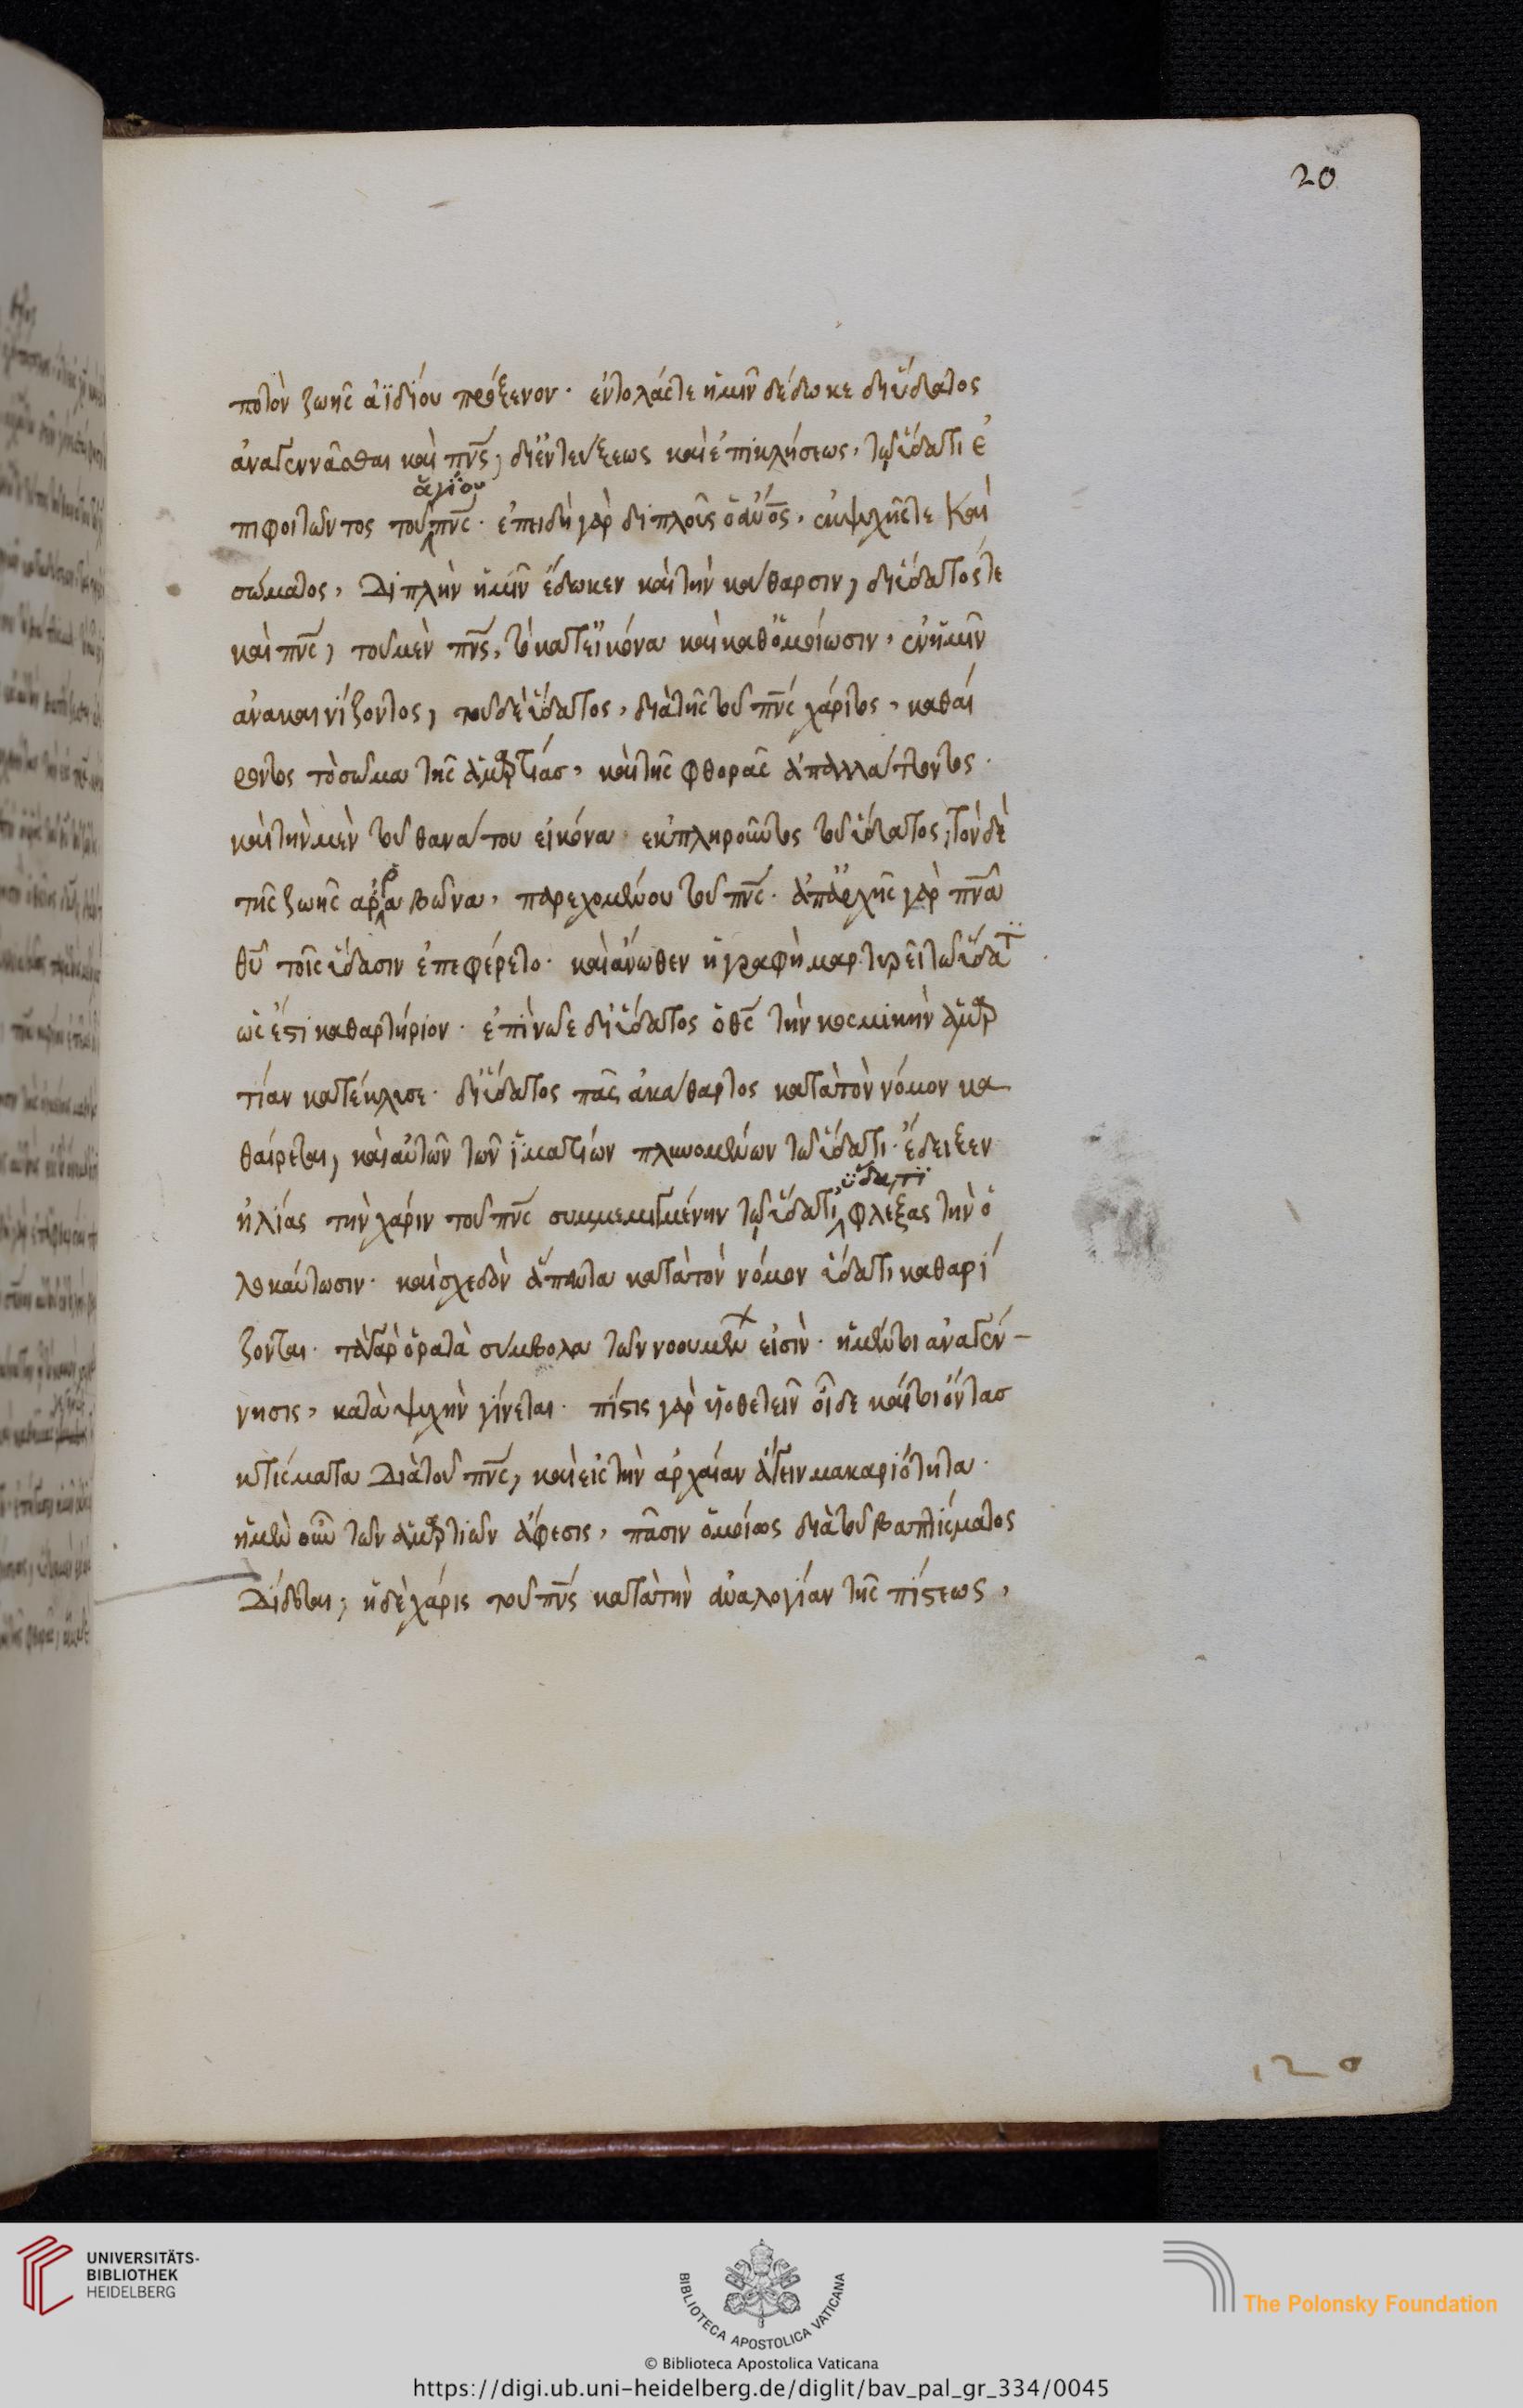 20
ποτὸν ζωῆς ἀϊδίου πρόξενον· ἐντολάς τε ἡμῖν δέδωκε δι' ὕδατος
ἀναγεννᾶσθαι καὶ πν̅ς, δι' ἐντεύξεως καὶ ἐπικλήσεως, τῷ ὕδατι ἐ
ἁγίου
πιφοιτῶντος τοῦ πν̅ς· ἐπειδὴ γὰρ διπλοῦς ὁ ἄν̅ος, ἐκ ψυχῆς τε καὶ
σώματος, διπλὴν ἡμῖν ἔδωκεν καὶ τὴν κάθαρσιν, δι' ὕδατός τε
καὶ πν̅ς, τοῦ μὲν πν̅ς, τὸ κατ' εἰκόνα καὶ καθ' ὁμοίωσιν, ἐν ἡμῖν
ἀνακαινίζοντος, τοῦ δὲ ὕδατος, διὰ τῆς τοῦ πν̅ς χάριτος, καθαί
ροντος τὸ σῶμα τῆς ἁμαρτίας, καὶ τῆς φθορᾶς ἀπαλλάττοντος·
καὶ τὴν μὲν τοῦ θανάτου εἰκόνα ἐκπληροῦντος τοῦ ὕδατος, τὸν δὲ
τῆς ζωῆς ἀρραβῶνα, παρεχομένου τοῦ πν̅ς· ἀπ' ἀρχῆς γὰρ πν̅α
θ̅υ τοῖς ὕδασιν ἐπεφέρετο· καὶ ἄνωθεν ἡ γραφὴ μαρτυρεῖ τῷ ὕδατϊ
ὡς ἔστι καθαρτήριον· ἐπὶ νῶε δι' ὕδατος ὁ θ̅ς τὴν κοσμικὴν ἁμαρ
τίαν κατέκλυσε· δι' ὕδατος πᾶς ἀκάθαρτος κατὰ τὸν νόμον κα
θαίρεται, καὶ αὐτῶν τῶν ἱματίων πλυνομένων τῷ ὕδατι· ἔδειξεν
ὕδατϊ
ἠλίας τὴν χάριν τοῦ πν̅ς συμμεμιγμένην τῷ ὕδατι, φλέξας τὴν ὁ
λοκαύτωσιν· καὶ σχεδὸν ἅπαντα κατὰ τὸν νόμον ὕδατι καθαρί
ζονται· τὰ γὰρ ὁρατὰ σύμβολα τῶν νοουμένων εἰσὶν· ἡ μέντοι ἀναγέν-
νησις, κατὰ ψυχὴν γίνεται· πίστις γὰρ υἱοθετεῖν οἶδε καίτοι ὄντας
κτίσματα διὰ τοῦ πν̅ς, καὶ εἰς τὴν ἀρχαίαν ἄγειν μακαριότητα·
ἡ μὲν οὖν τῶν ἁμαρτιῶν ἄφεσις, πᾶσιν ὁμοίως διὰ τοῦ βαπτίσματος
δίδοται, ἡ δὲ χάρις τοῦ πν̅ς κατὰ τὴν ἀναλογίαν τῆς πίστεως,
120
UNIVERSITÄTS-
BIBLIOTHEK
HEIDELBERG
BIBLIOTECA APOSTOLICA VATICANA
The Polonsky Foundation
© Biblioteca Apostolica Vaticana
https://digi.ub.uni-heidelberg.de/diglit/bav_pal_gr_334/0045